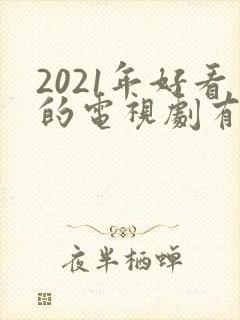 2021年好看
的電視劇有
夜半栖蝉